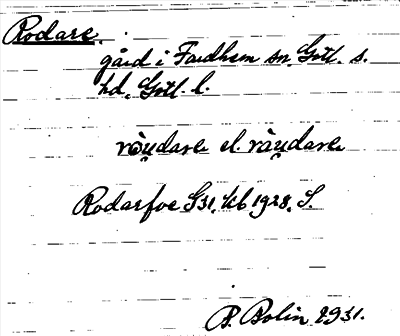 Rodare.
gård i Fardhem sn. Gotl. s.
hd. Gotl. l.
ròu̯dare el. ràu̯dare
Rodarfve G31, Kb 1928. S.
B. Bolin 1931.